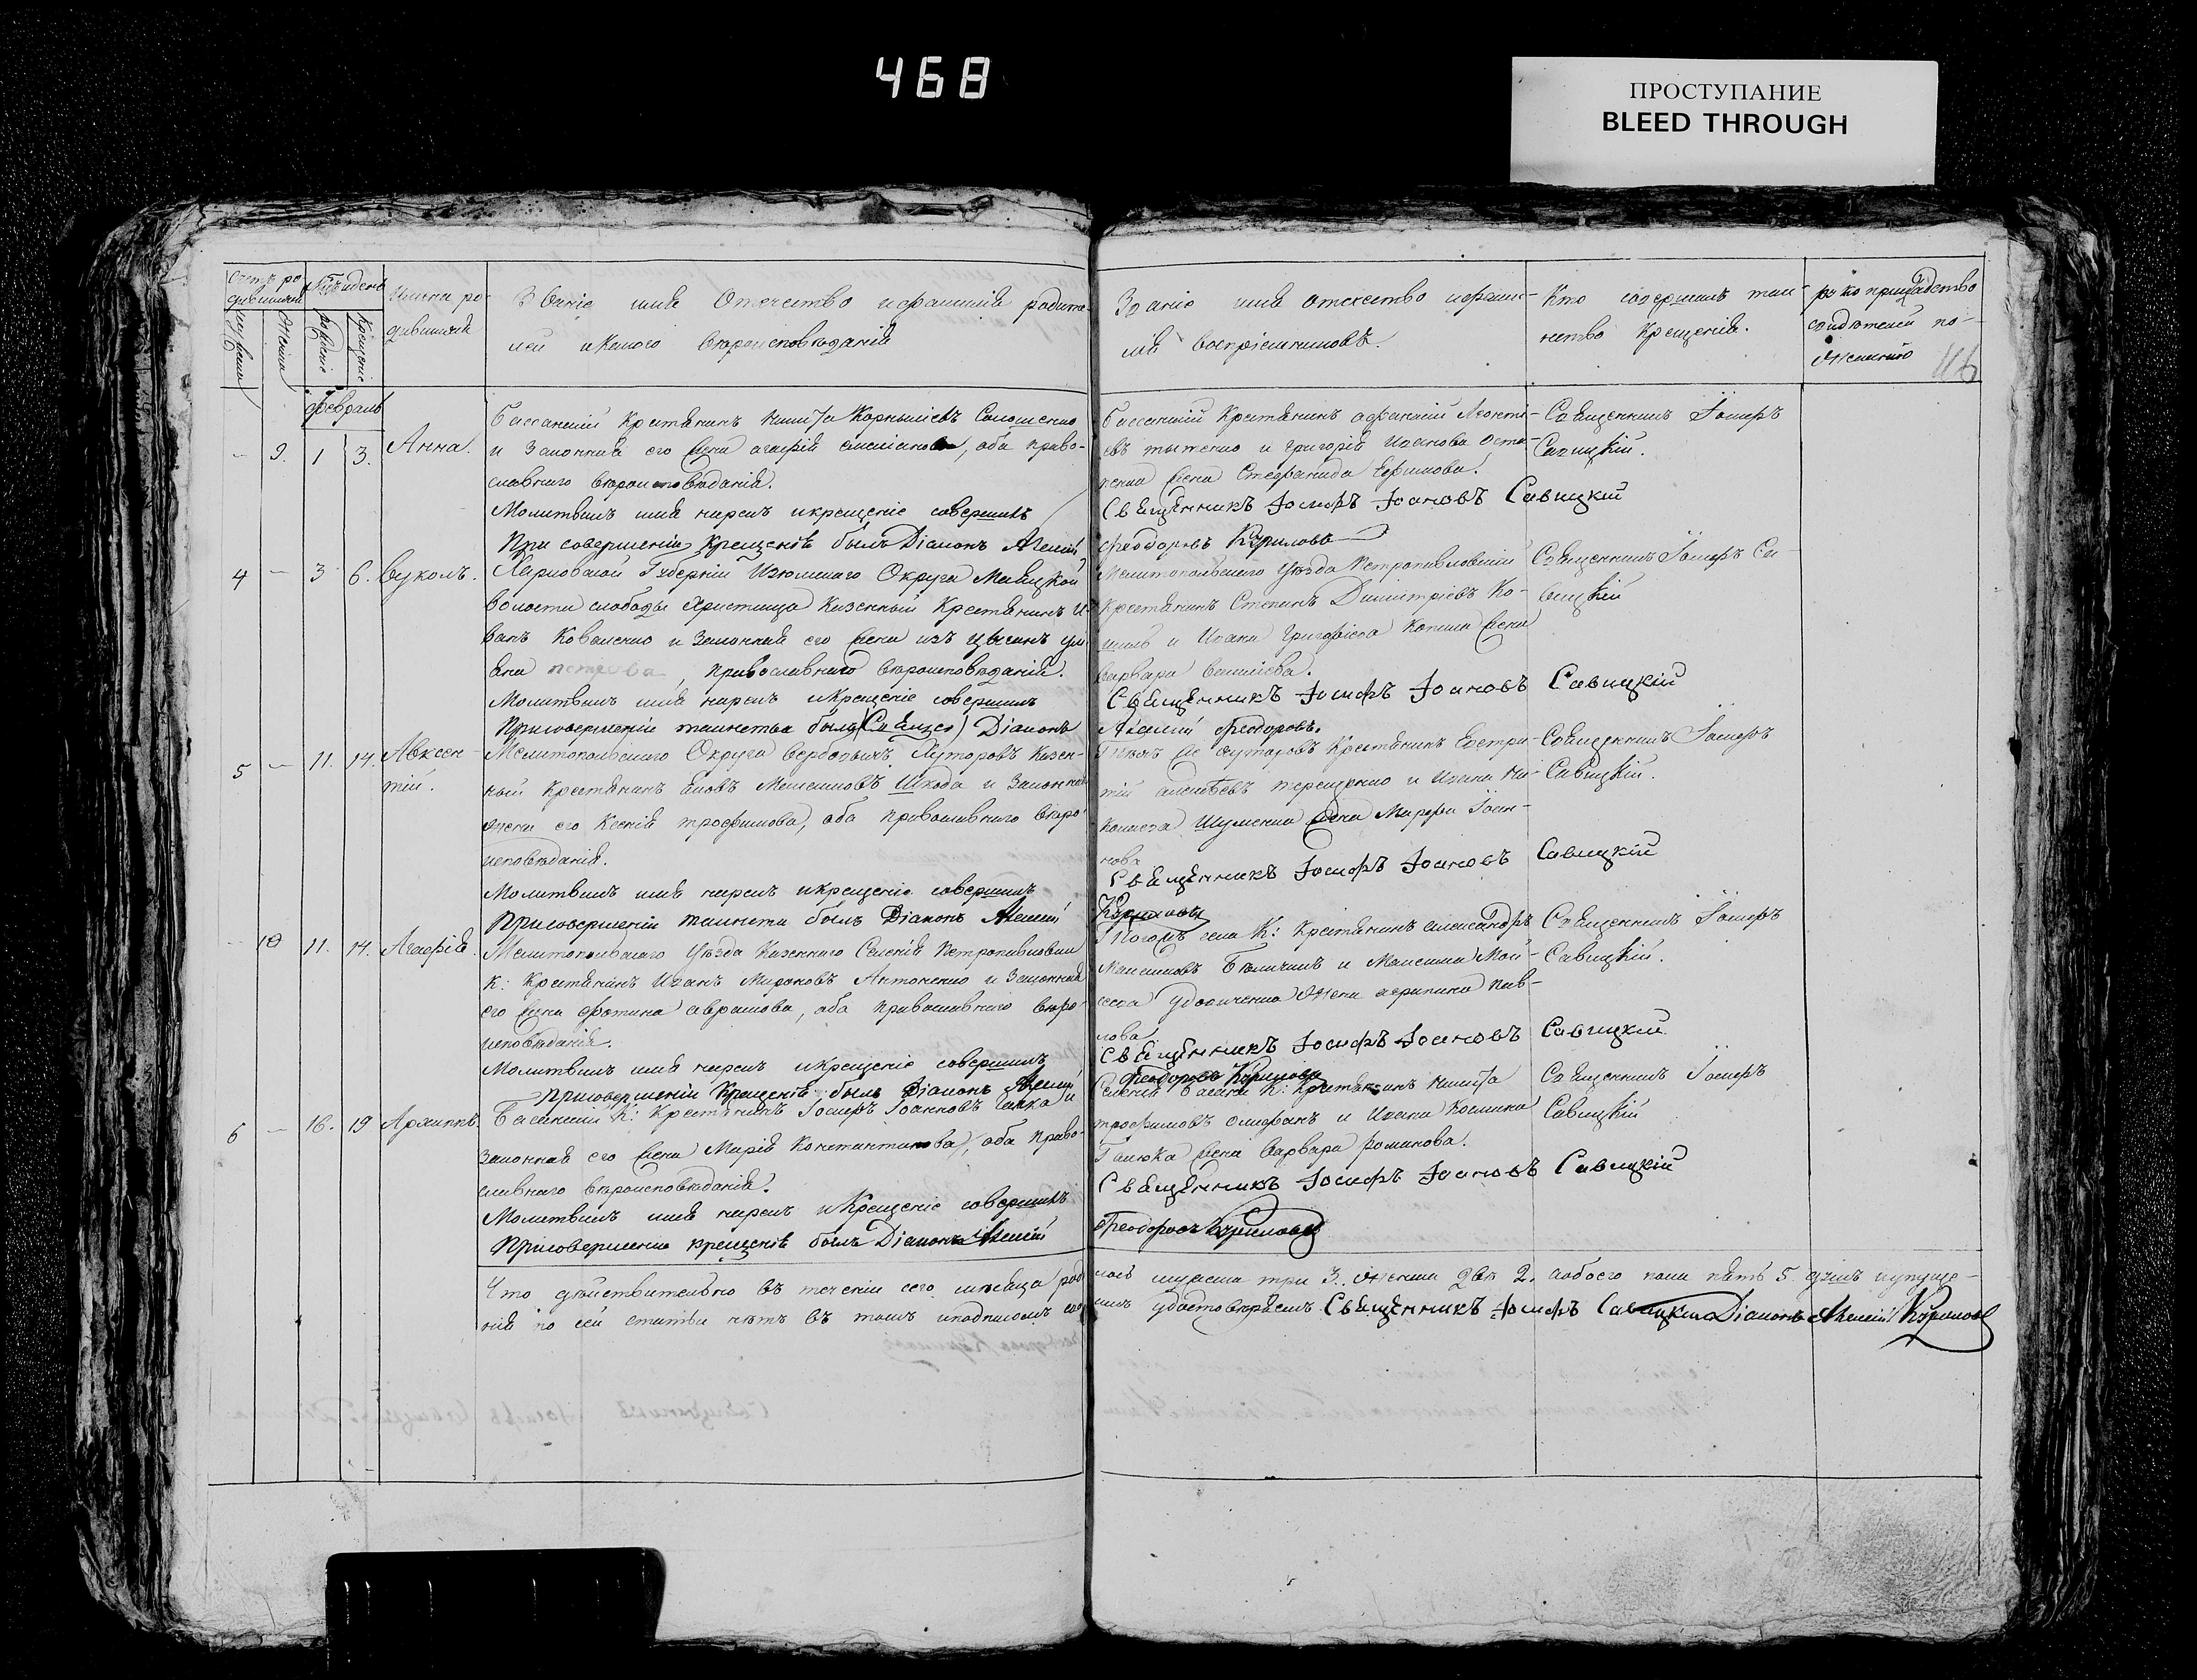 468
ПРОСТУПАНИЕ
BLEED THROUGH
Счетъ ро-
дившихся
Мѣсяцъ и день
Имена ро-
дившихся
Званіе имя отечество и фамилія родите-
лей и какого вѣроисповѣданія
Званіе имя отечество и фами-
лія воспріемниковъ.
Кто совершилъ таи-
нство крещенія.
рукоприкладство
свидѣтелей по
желанію
116
рожденіе
крещеніе
февраль
9. 1 3. Анна.
Басанскій крестьянинъ Никита Корнилiевъ Солошенко
и законная его жена агафія, оба право-
славнаго вѣроисповѣданія.
Молитвилъ имя нарекъ и крещеніе совершилъ
При совершеніи крещенія былъ Діаконъ Алексій
Басанскій крестьянинъ афанасій Леонті-
евъ и григорія иванова
жена Стефанида Ефимова.
Священникъ Іосифъ Іоановъ Савицкій
Феодоровъ Куриловъ
Священникъ Іосифъ
Савицкій.
4 — 3 6. Вуколъ.
Харковской Губерніи Изюмскаго Округа Маяцкой
волости слободы Христища Казенный Крестьянинъ И-
ванъ Коваленко и Законная его жена изъ цыганъ ули-
яна петрова, православнаго вѣроисповѣданія.
Молитвилъ имя нарекъ и Крещеніе совершилъ
При совершеніи таинства былъ Діаконъ
Мелитопольскаго Уѣзда Петропавловскій
Крестьянинъ Степанъ Димитріевъ Ко-
и Ивана Григорьева жена
варвара василіева.
Священникъ Іосифъ Іоановъ Савицкій
Алексій Феодоровъ.
Священникъ Іосифъ Са-
вицкій
5 — 11. 14. Авксен-
тій.
Мелитопольскаго Округа Вербовыхъ Хуторовъ Казен-
ный Крестьянинъ Яковъ Максимовъ Шкода и Законная
жена его Ксенія трофимова, оба православнаго вѣро-
исповѣданія.
Молитвилъ имя нарекъ и крещеніе совершилъ
При совершеніи таинства былъ Діаконъ Алексій
Тѣхъ же хуторовъ Крестьянинъ Евстра-
тій алексѣевъ терещенко и Ивана Ни-
колаева Шумейка жена Марфа Іоан-
нова
Священникъ Іосифъ Іоановъ Савицкій
Куриловъ
Священникъ Іосифъ
Савицкій.
10 11. 14. Агафія.
Мелитопольскаго Уѣзда Казеннаго Селенія Петропавловки
К: Крестьянинъ Иванъ Мироновъ Антоненко и Законная
его жена фотина аврамова, оба православнаго вѣро-
исповѣданія.
Молитвилъ имя нарекъ и Крещеніе совершилъ
При совершеніи Крещенія былъ Діаконъ Алексій
Тогожъ села К: Крестьянинъ александръ
Максимовъ и Максима Мой-
сеева Удовиченка жена агрипина пав-
лова
Священникъ Іосифъ Іоановъ Савицкій
Феодоровъ Куриловъ
Священникъ Іосифъ
Савицкій.
6 — 16. 19 Архиппъ.
Басанскій К: Крестьянинъ Іосифъ Іоанновъ и
Законная его жена Марія Константинова, оба право-
славнаго вѣроисповѣданія.
Молитвилъ имя нарекъ и Крещеніе совершилъ
При совершеніи крещенія былъ Діаконъ Алексій
Селенія Басани К: Крестьянинъ Никита
трофимовъ и Ивана
жена Варвара романова.
Священникъ Іосифъ Іоановъ Савицкій
Феодоровъ Куриловъ
Священникъ Іосифъ
Савицкій
Что дѣйствительно въ теченіи сего мѣсяца роди-
лось мужеска три 3. женска двѣ 2. а обоего пола пять 5. душъ и пропуще-
нія по сей статьи нѣтъ въ томъ и подписомъ сво-
имъ удостовѣряемъ Священникъ Іосифъ Савицкій Діаконъ Алексій Куриловъ